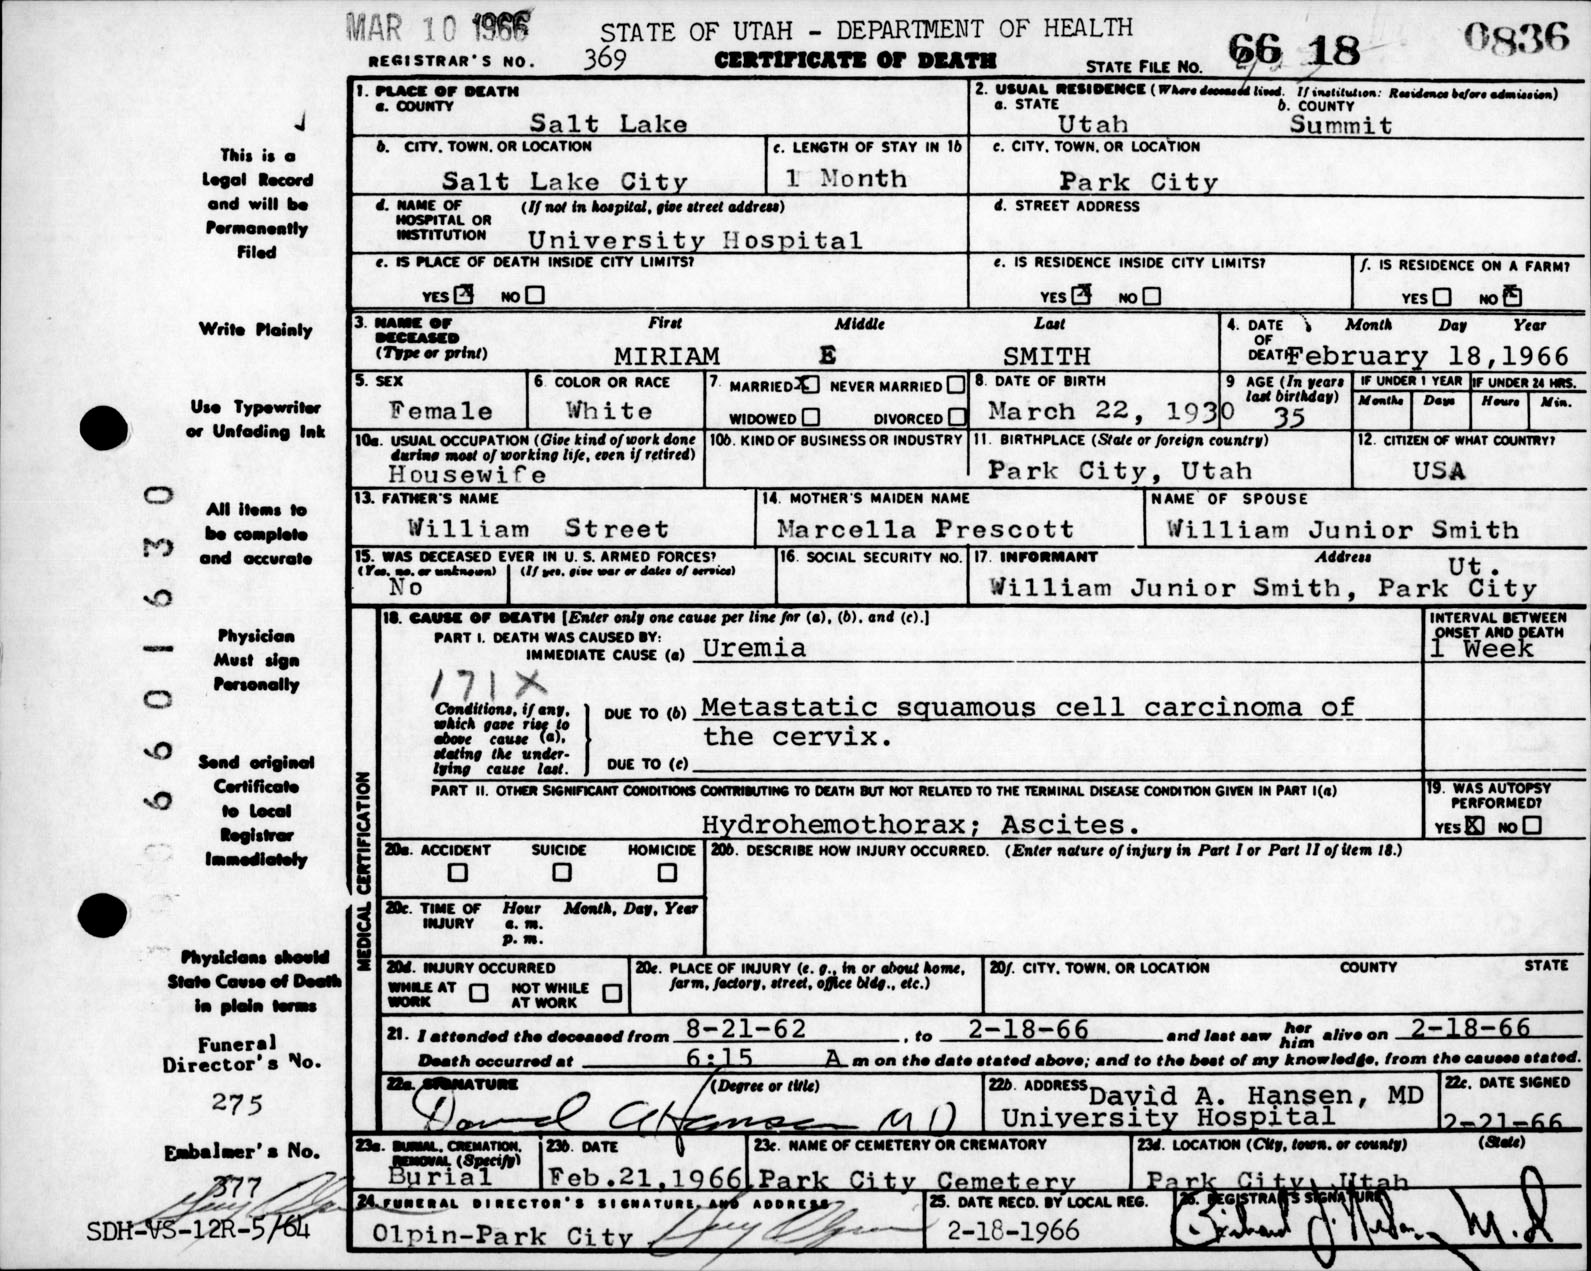 MAR 10 1966
STATE OF UTAH - DEPARTMENT OF HEALTH
0836
REGISTRAR'S NO. 369
CERTIFICATE OF DEATH
STATE FILE NO. 66 18
1. PLACE OF DEATH
a. COUNTY
Salt Lake
2. USUAL RESIDENCE (Where deceased lived. If institution: Residence before admission)
a. STATE
Utah
b. COUNTY
Summit
b. CITY, TOWN, OR LOCATION
Salt Lake City
c. LENGTH OF STAY IN 1b
1 Month
c. CITY, TOWN, OR LOCATION
Park City
d. NAME OF HOSPITAL OR INSTITUTION
(If not in hospital, give street address)
University Hospital
d. STREET ADDRESS
e. IS PLACE OF DEATH INSIDE CITY LIMITS?
YES X NO
e. IS RESIDENCE INSIDE CITY LIMITS?
YES X NO
f. IS RESIDENCE ON A FARM?
YES NO X
3. NAME OF DECEASED
(Type or print)
First Middle Last
MIRIAM E SMITH
4. DATE OF DEATH
Month Day Year
February 18,1966
5. SEX
Female
6. COLOR OR RACE
White
7. MARRIED X NEVER MARRIED
WIDOWED DIVORCED
8. DATE OF BIRTH
March 22, 1930
9 AGE (In years last birthday)
35
IF UNDER 1 YEAR
Months Days
IF UNDER 24 HRS.
Hours Min.
10a. USUAL OCCUPATION (Give kind of work done during most of working life, even if retired)
Housewife
10b. KIND OF BUSINESS OR INDUSTRY
11. BIRTHPLACE (State or foreign country)
Park City, Utah
12. CITIZEN OF WHAT COUNTRY?
USA
13. FATHER'S NAME
William Street
14. MOTHER'S MAIDEN NAME
Marcella Prescott
NAME OF SPOUSE
William Junior Smith
15. WAS DECEASED EVER IN U. S. ARMED FORCES?
(Yes, no, or unknown) (If yes, give war or dates of service)
No
16. SOCIAL SECURITY NO.
17. INFORMANT Address
Ut.
William Junior Smith, Park City
MEDICAL CERTIFICATION
18. CAUSE OF DEATH [Enter only one cause per line for (a), (b), and (c).]
INTERVAL BETWEEN ONSET AND DEATH
PART I. DEATH WAS CAUSED BY:
IMMEDIATE CAUSE (a) Uremia
1 Week
171X
Conditions, if any, which gave rise to above cause (a), stating the underlying cause last.
DUE TO (b) Metastatic squamous cell carcinoma of
the cervix.
DUE TO (c)
PART II. OTHER SIGNIFICANT CONDITIONS CONTRIBUTING TO DEATH BUT NOT RELATED TO THE TERMINAL DISEASE CONDITION GIVEN IN PART I(a)
Hydrohemothorax; Ascites.
19. WAS AUTOPSY PERFORMED?
YES X NO
20a. ACCIDENT SUICIDE HOMICIDE
20b. DESCRIBE HOW INJURY OCCURRED. (Enter nature of injury in Part I or Part II of item 18.)
20c. TIME OF INJURY
Hour Month, Day, Year
a. m.
p. m.
20d. INJURY OCCURRED
WHILE AT WORK NOT WHILE AT WORK
20e. PLACE OF INJURY (e. g., in or about home, farm, factory, street, office bldg., etc.)
20f. CITY, TOWN, OR LOCATION COUNTY STATE
21. I attended the deceased from 8-21-62, to 2-18-66 and last saw her him alive on 2-18-66
Death occurred at 6:15 A m on the date stated above; and to the best of my knowledge, from the causes stated.
22a. SIGNATURE (Degree or title)
David A Hansen MD
22b. ADDRESS David A. Hansen, MD
University Hospital
22c. DATE SIGNED
2-21-66
23a. BURIAL, CREMATION, REMOVAL (Specify)
Burial
23b. DATE
Feb.21,1966
23c. NAME OF CEMETERY OR CREMATORY
Park City Cemetery
23d. LOCATION (City, town, or county) (State)
Park City, Utah
24 FUNERAL DIRECTOR'S SIGNATURE AND ADDRESS
Olpin-Park City
25. DATE RECD. BY LOCAL REG.
2-18-1966
26. REGISTRAR'S SIGNATURE
M.D
This is a
Legal Record
and will be
Permanently
Filed
Write Plainly
Use Typewriter
or Unfading Ink
All items to
be complete
and accurate
Physician
Must sign
Personally
Send original
Certificate
to Local
Registrar
Immediately
Physicians should
State Cause of Death
in plain terms
Funeral
Director's No.
275
Embalmer's No.
377
SDH-VS-12R-5/64
6601630